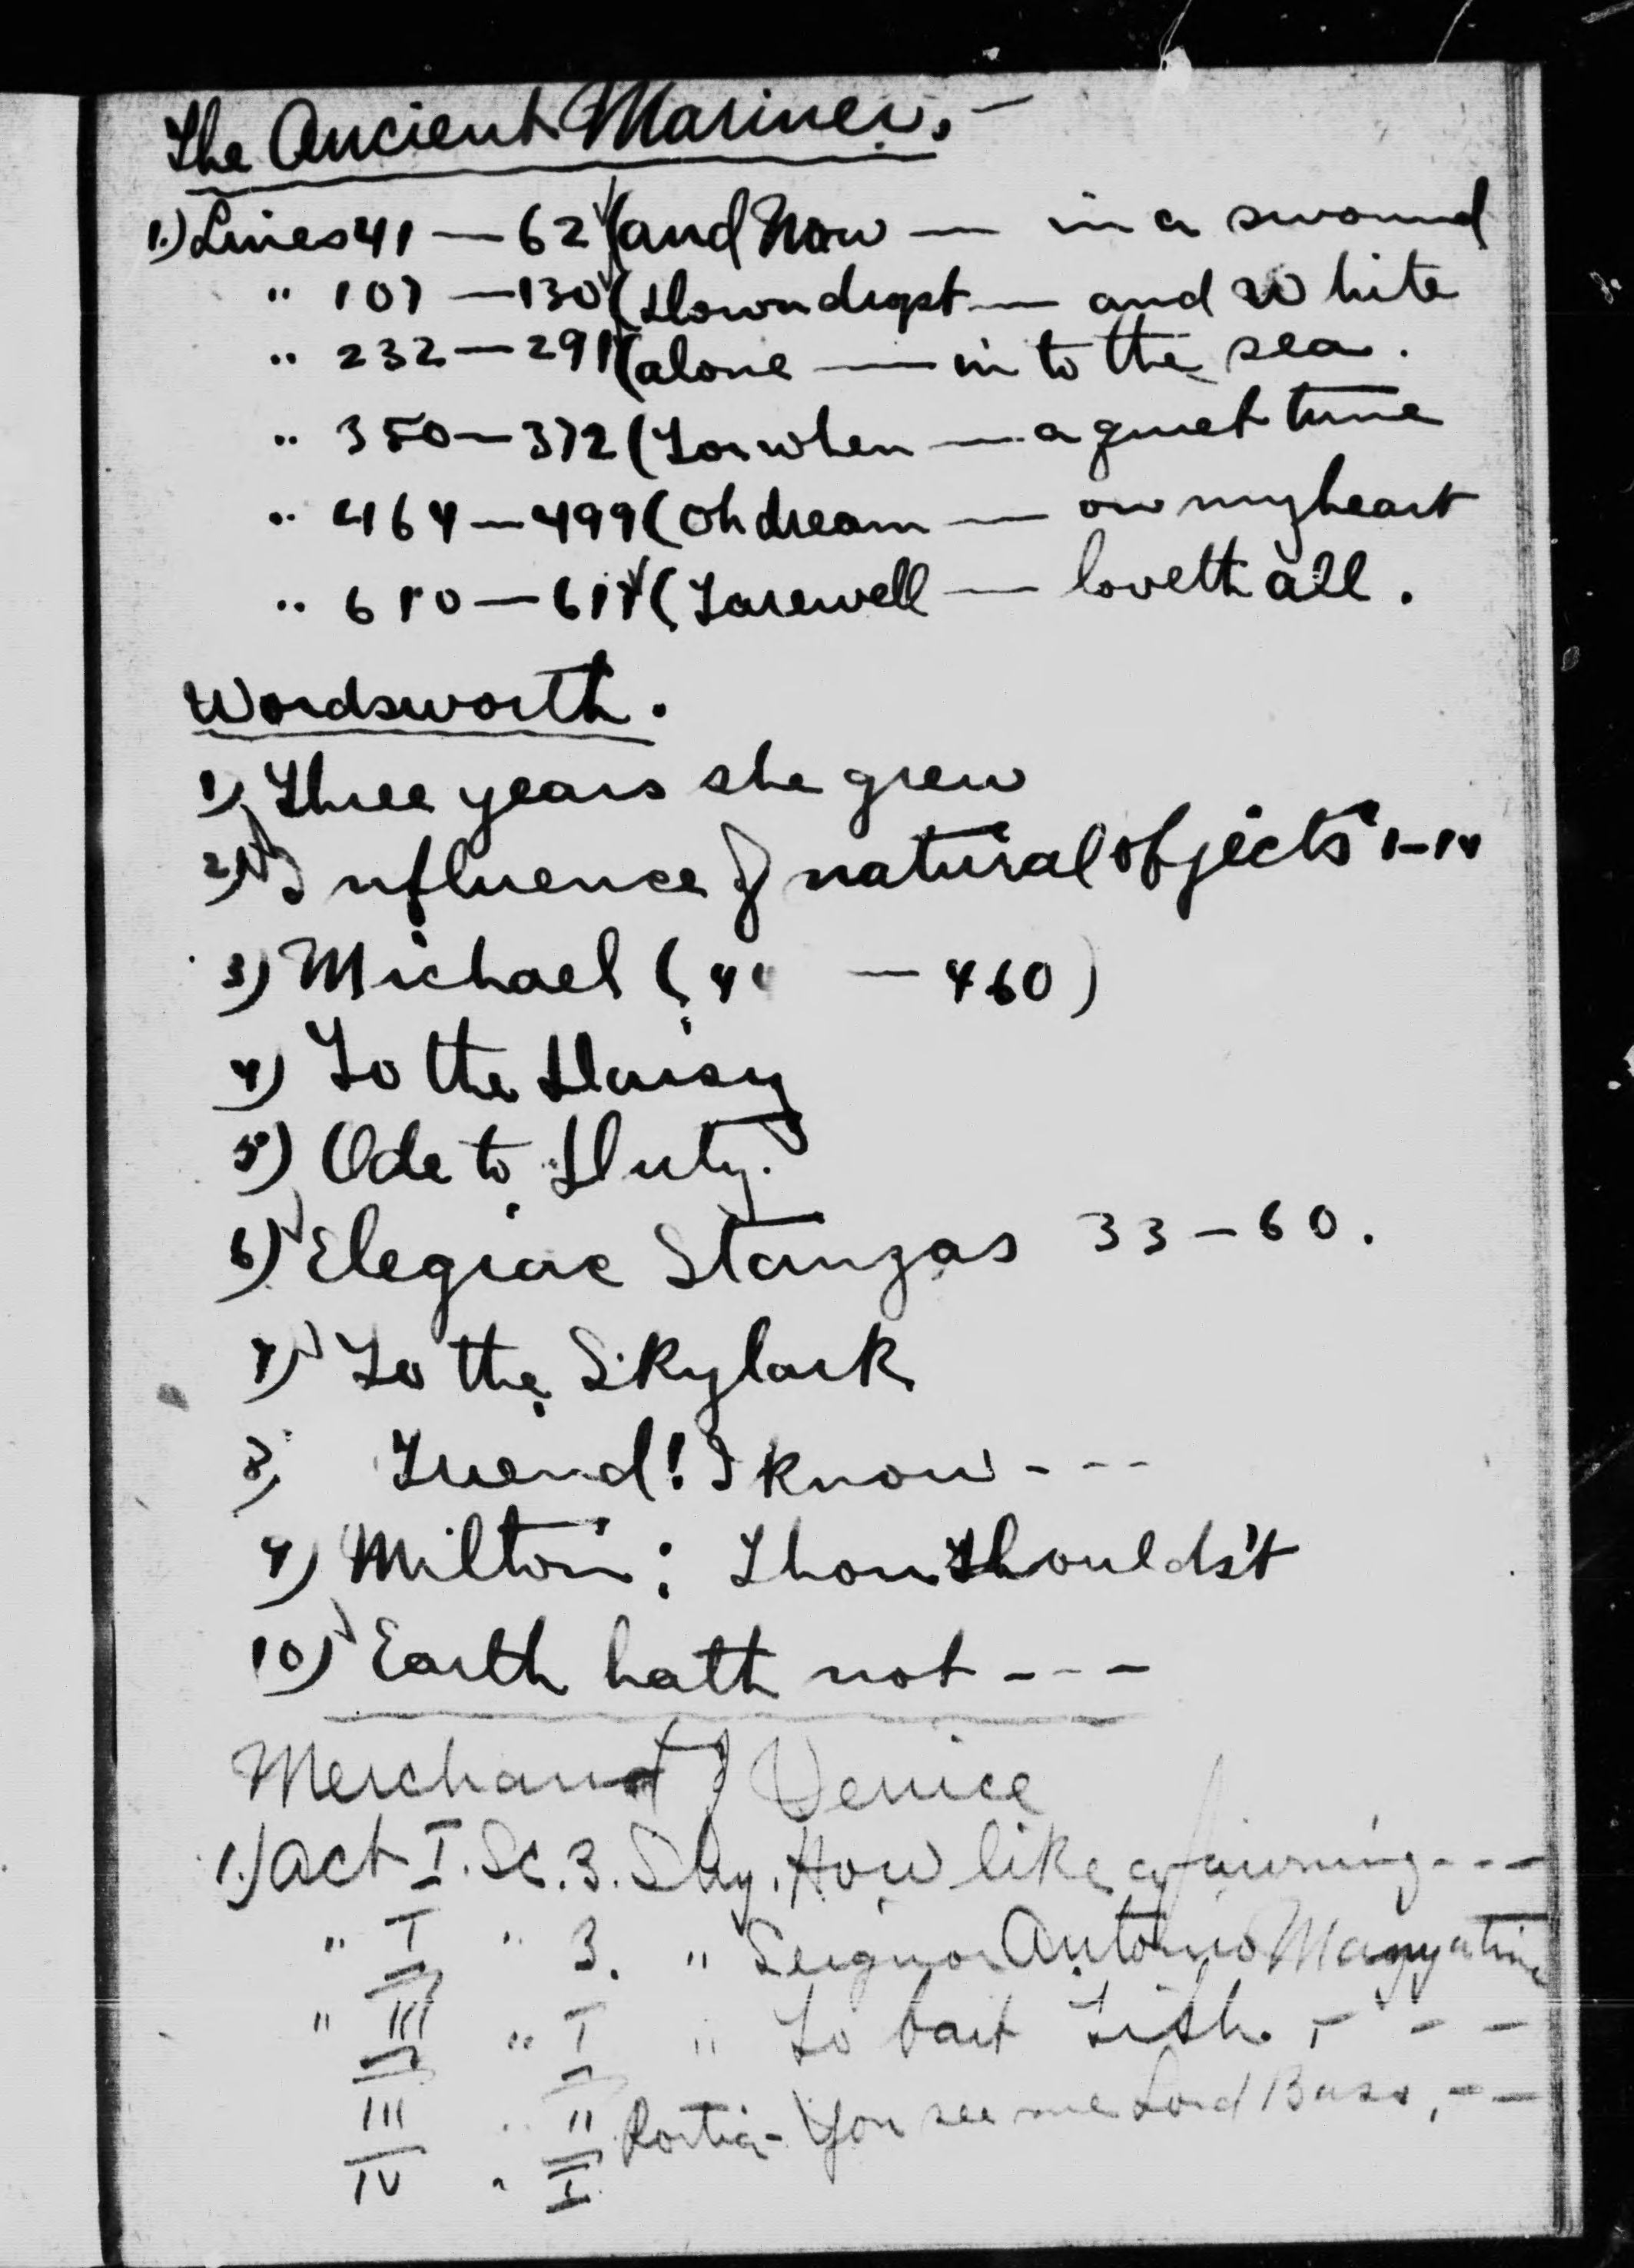 The Ancient Mariner. –
1.) Lines 41 — 62 (and Now — in a swound
" 107 — 130 (Down dropt — and White
" 232 — 291 (alone — in to the sea.
" 350 — 372 (For when — a quiet tune
" 464 — 499 (Oh dream — on my heart
" 610 — 617 (Farewell — loveth all.
Wordsworth.
1) Three years she grew
2) Influence of natural objects 1–14
3) Michael ( — 460)
4) To the Daisy
5) Ode to Duty.
6) Elegiac Stanzas 33 – 60.
7) To the Skylark
8) Friend! I know - - -
9) Milton: Thou Shoulds't
10) Earth hath not - - -
Merchant of Venice
1.) Act I. Sc. 3. Shy. How like a fawning - - -
" I " 3. " Seignor Antonio Many a time
" III " I " To bait Fish. - - -
III " II Portia - You see me Lord Bass. - -
IV " I